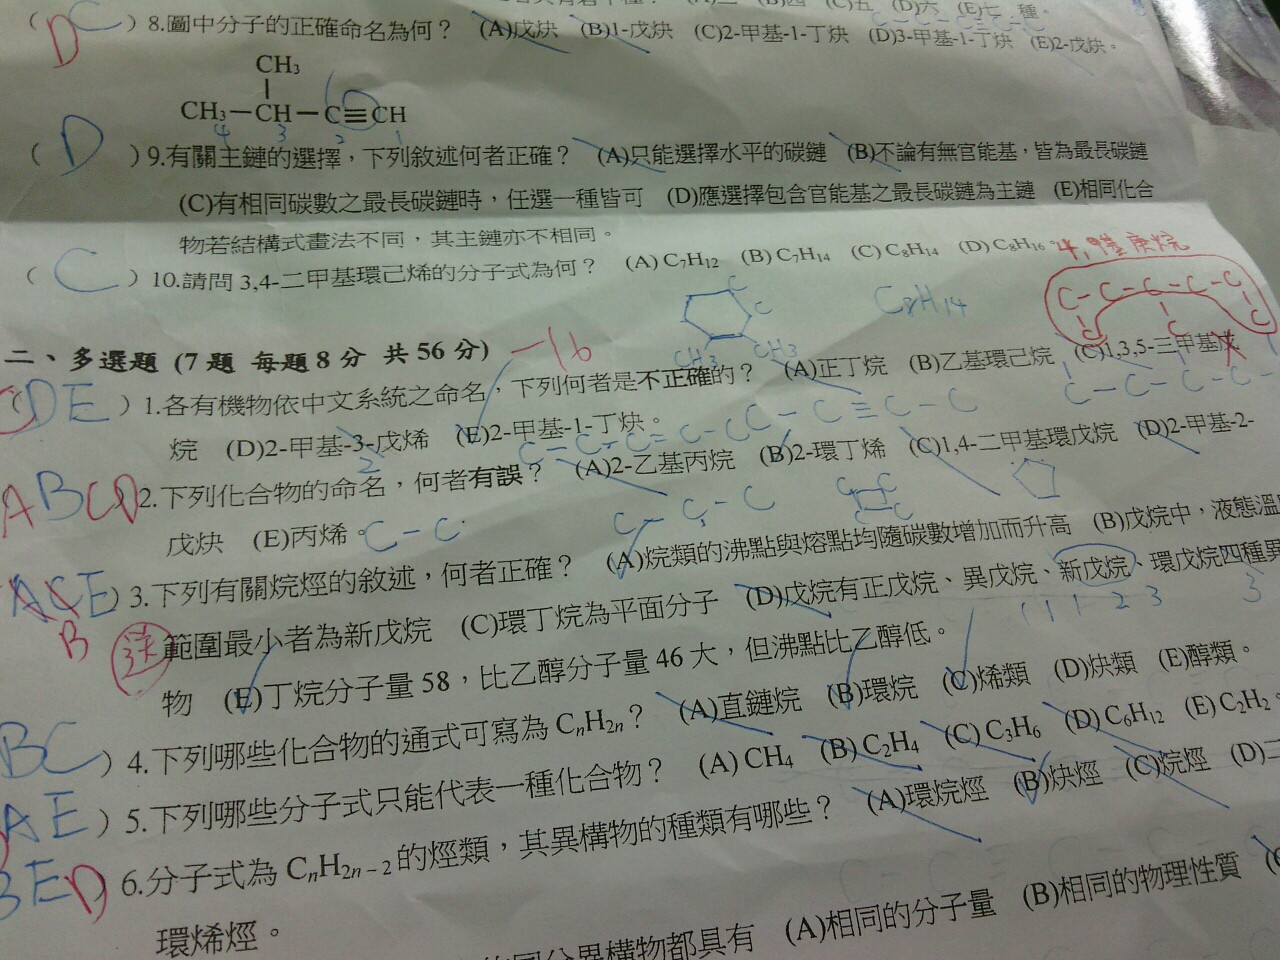 (B)四 (C)五 (D)六 (E)七 種。
D C ) 8.圖中分子的正確命名為何? (A)戊炔 (B)1-戊炔 (C)2-甲基-1-丁炔 (D)3-甲基-1-丁炔 (E)2-戊炔。
CH3
CH3－CH－C≡CH
4 3 2 1
( D ) 9.有關主鏈的選擇,下列敘述何者正確? (A)只能選擇水平的碳鏈 (B)不論有無官能基,皆為最長碳鏈
(C)有相同碳數之最長碳鏈時,任選一種皆可 (D)應選擇包含官能基之最長碳鏈為主鏈 (E)相同化合
物若結構式畫法不同,其主鏈亦不相同。
( C ) 10.請問 3,4-二甲基環己烯的分子式為何? (A) C7H12 (B) C7H14 (C) C8H14 (D) C8H16
C8H14
CH3 CH3
二、多選題 (7 題 每題 8 分 共 56 分) -16
CDE ) 1.各有機物依中文系統之命名,下列何者是不正確的? (A)正丁烷 (B)乙基環己烷 (C)1,3,5-三甲基戊
烷 (D)2-甲基-3-戊烯 (E)2-甲基-1-丁炔。
C－C≡C－C
ABCD ) 2.下列化合物的命名,何者有誤? (A)2-乙基丙烷 (B)2-環丁烯 (C)1,4-二甲基環戊烷 (D)2-甲基-2-
戊炔 (E)丙烯。
ACE ) 3.下列有關烷烴的敘述,何者正確? (A)烷類的沸點與熔點均隨碳數增加而升高 (B)戊烷中,液態溫
B 送 範圍最小者為新戊烷 (C)環丁烷為平面分子 (D)戊烷有正戊烷、異戊烷、新戊烷、環戊烷四種異
物 (E)丁烷分子量 58,比乙醇分子量 46 大,但沸點比乙醇低。
BC ) 4.下列哪些化合物的通式可寫為 CnH2n? (A)直鏈烷 (B)環烷 (C)烯類 (D)炔類 (E)醇類。
AE ) 5.下列哪些分子式只能代表一種化合物? (A) CH4 (B) C2H4 (C) C3H6 (D) C6H12 (E) C2H2。
BED ) 6.分子式為 CnH2n－2 的烴類,其異構物的種類有哪些? (A)環烷烴 (B)炔烴 (C)烷烴 (D)二
環烯烴。
同分異構物都具有 (A)相同的分子量 (B)相同的物理性質